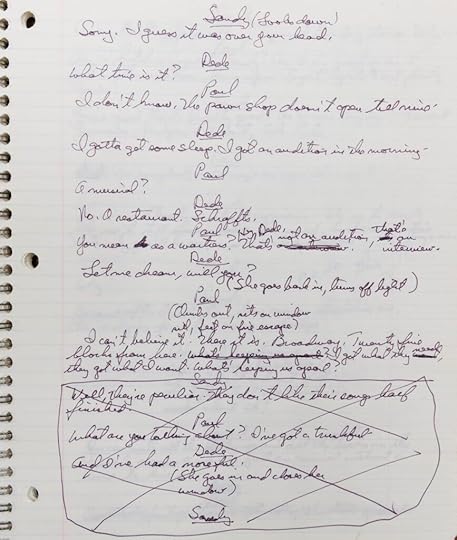 Sandy (Looks down)
Sorry. I guess it was over your head.
Dede
What time is it?
Paul
I don't know. The pawn shop doesn't open till nine.
Dede
I gotta get some sleep. I got an audition in the morning.
Paul
A musical?
Dede
No. A restaurant. Schraffts.
Paul
You mean as a waitress? Hey, Dede, that's not an audition, that's an interview.
Dede
Let me dream, will you?
(She goes back in, turns off light)
Paul
(Climbs out, sits on window
sill, feet on fire escape)
I can't believe it! There it is. Broadway. Twenty five
blocks from here. What's keeping us apart? I got what they need,
they got what I want. What's keeping us apart?
Sandy
Well, they're peculiar. They don't like their songs half
finished.
Paul
What are you talking about? I've got a trunkful.
Dede
And I've had a noseful.
(She goes in and closes her
window)
Sandy